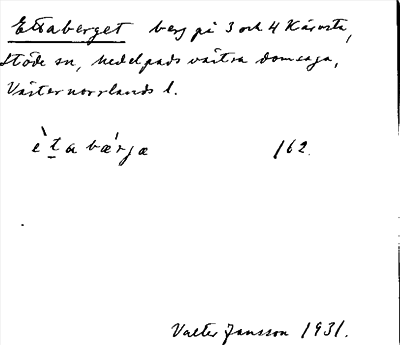 Ettaberget berg på 3 och 4 Kärvsta,
Stöde sn, Medelpads västra domsaga,
Västernorrlands l.
ètabárja 162.
Valter Jansson 1931.